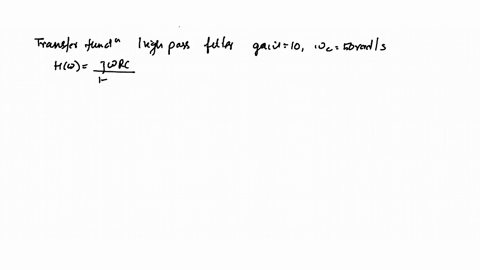 Transfer functⁿ high pass filter gain=10, ωc = 50 rad/s
H(ω) = jωRC / 1-